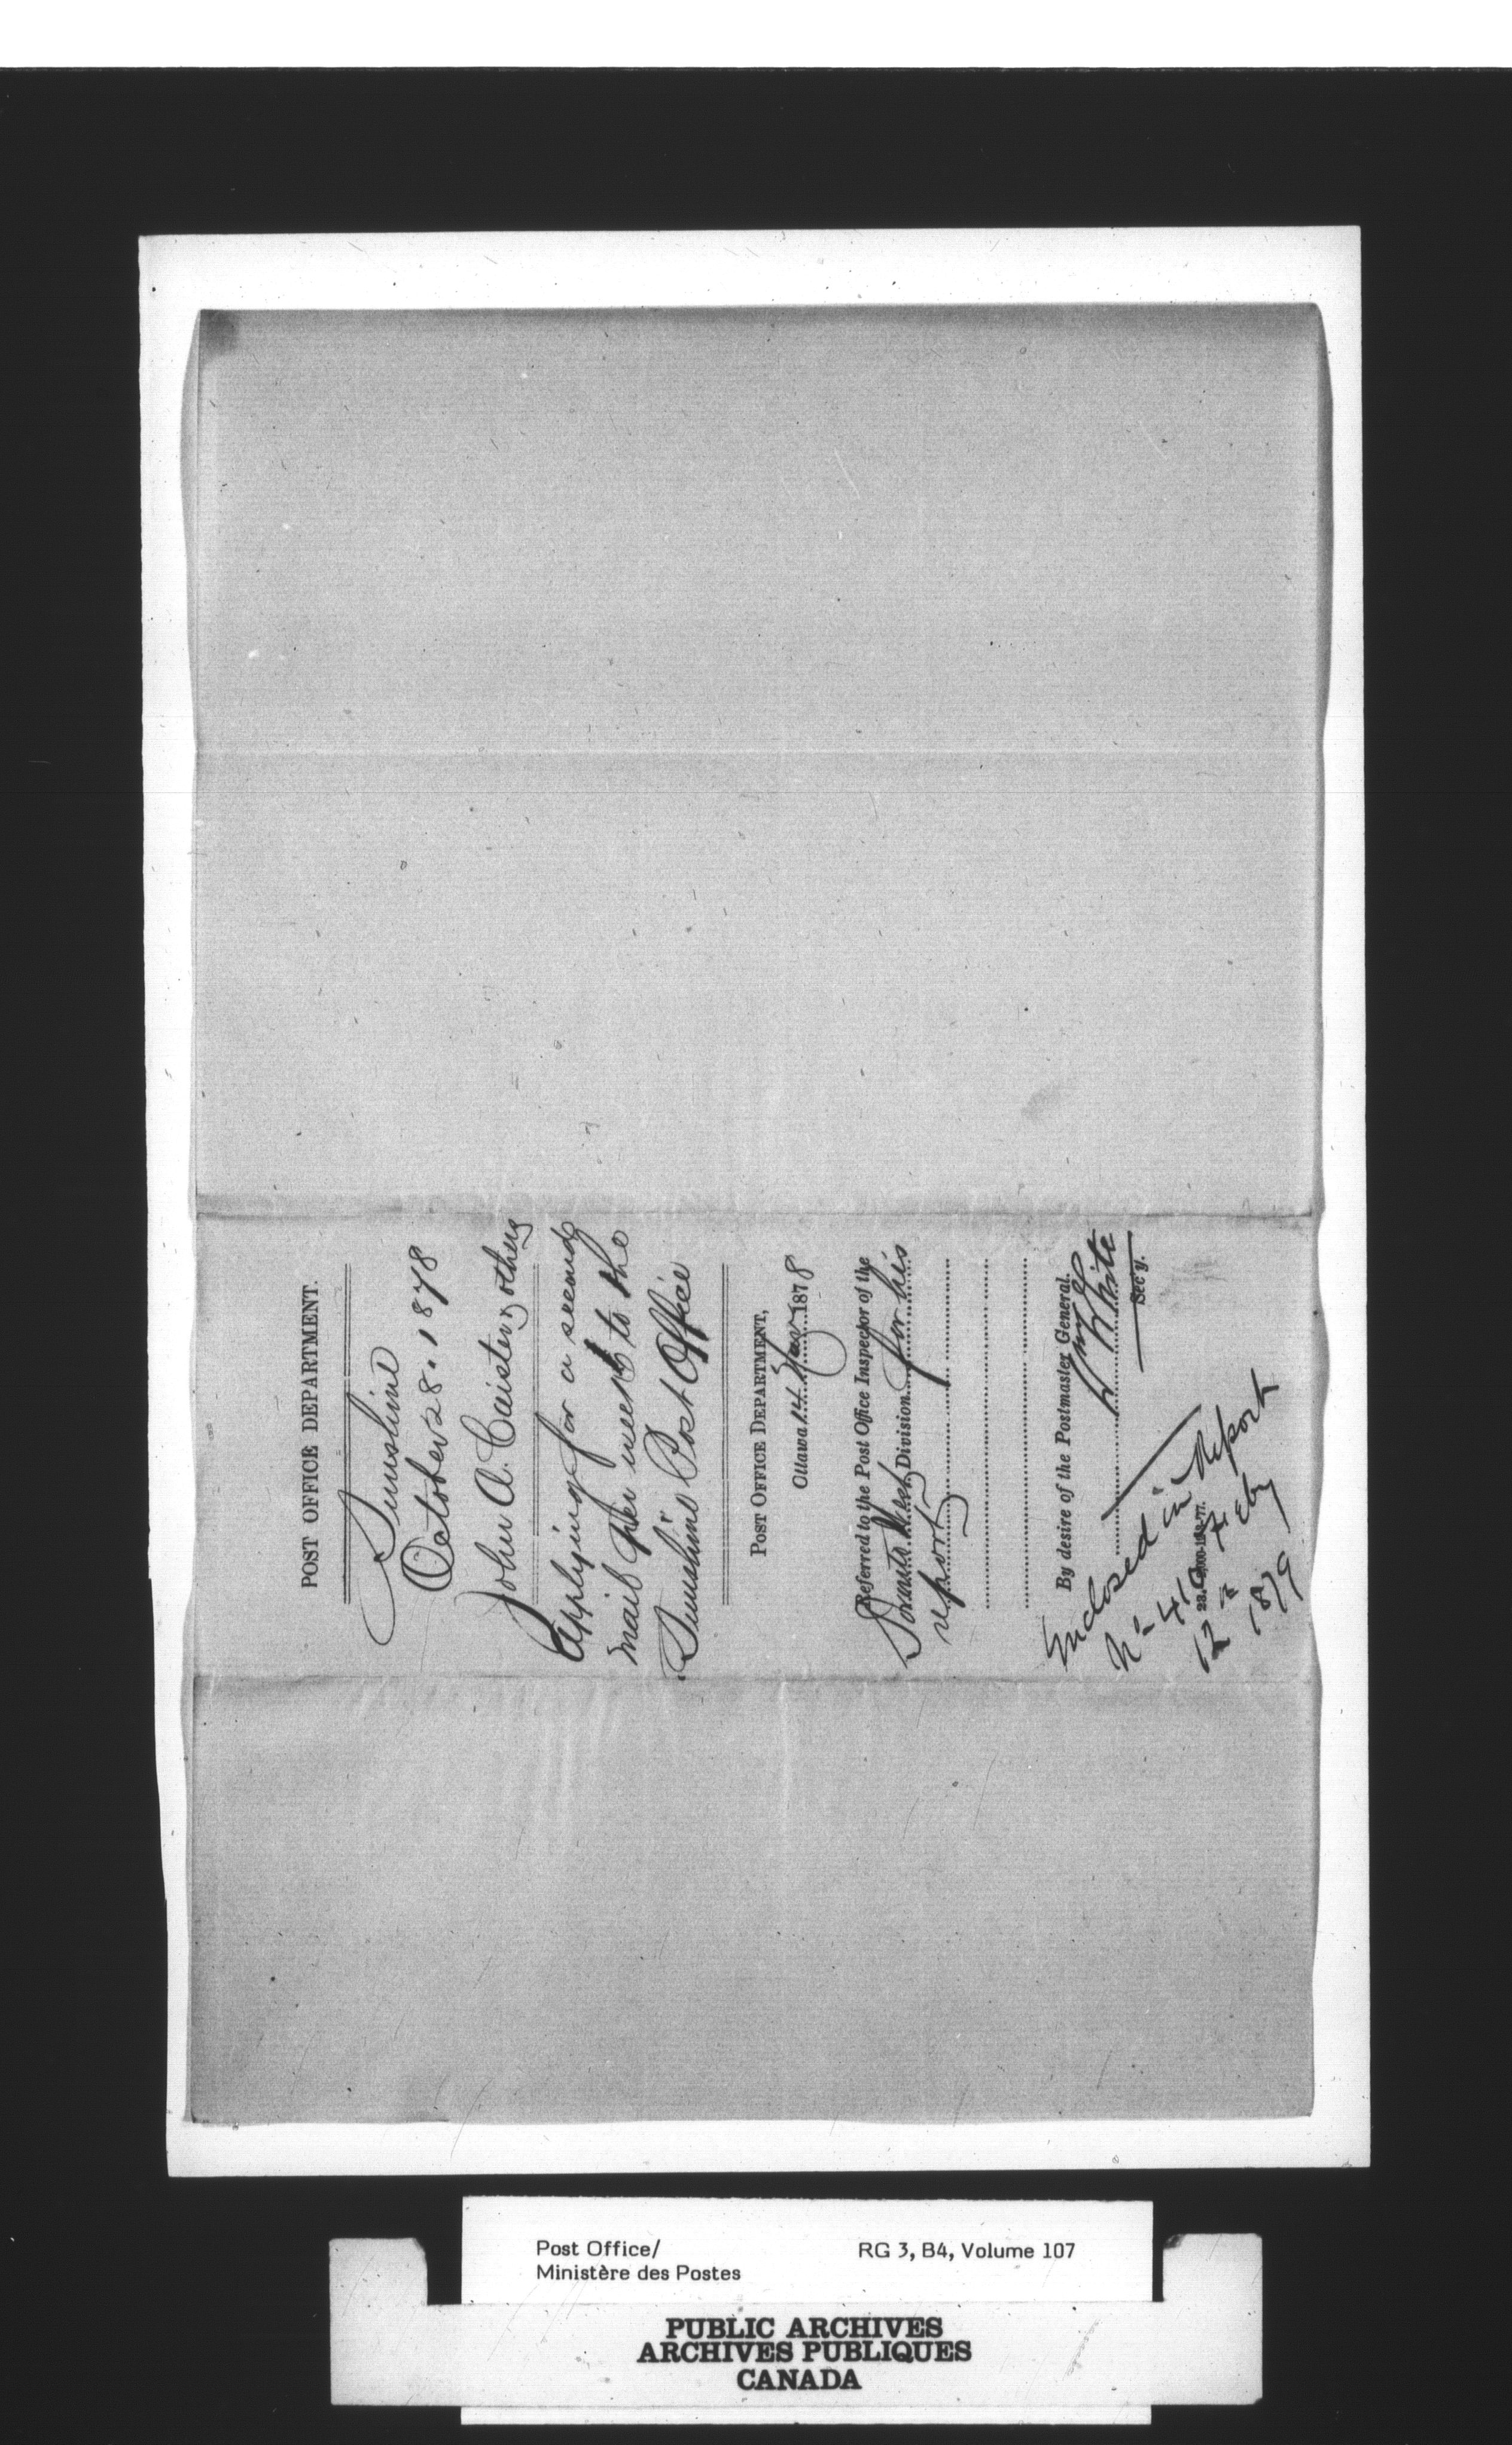 POST OFFICE DEPARTMENT.
Sunshine
October 28. 1878
John A. Caister & others
Applying for a second
mail per week to the
Sunshine Post Office
POST OFFICE DEPARTMENT,
Ottawa 14 Nov 1878
Referred to the Post Office Inspector of the
Division for his
report
By desire of the Postmaster General.
Wm White
Sec'y.
Enclosed in Report
No 410
12th Feby
1879
Post Office/
Ministère des Postes
RG 3, B4, Volume 107
PUBLIC ARCHIVES
ARCHIVES PUBLIQUES
CANADA